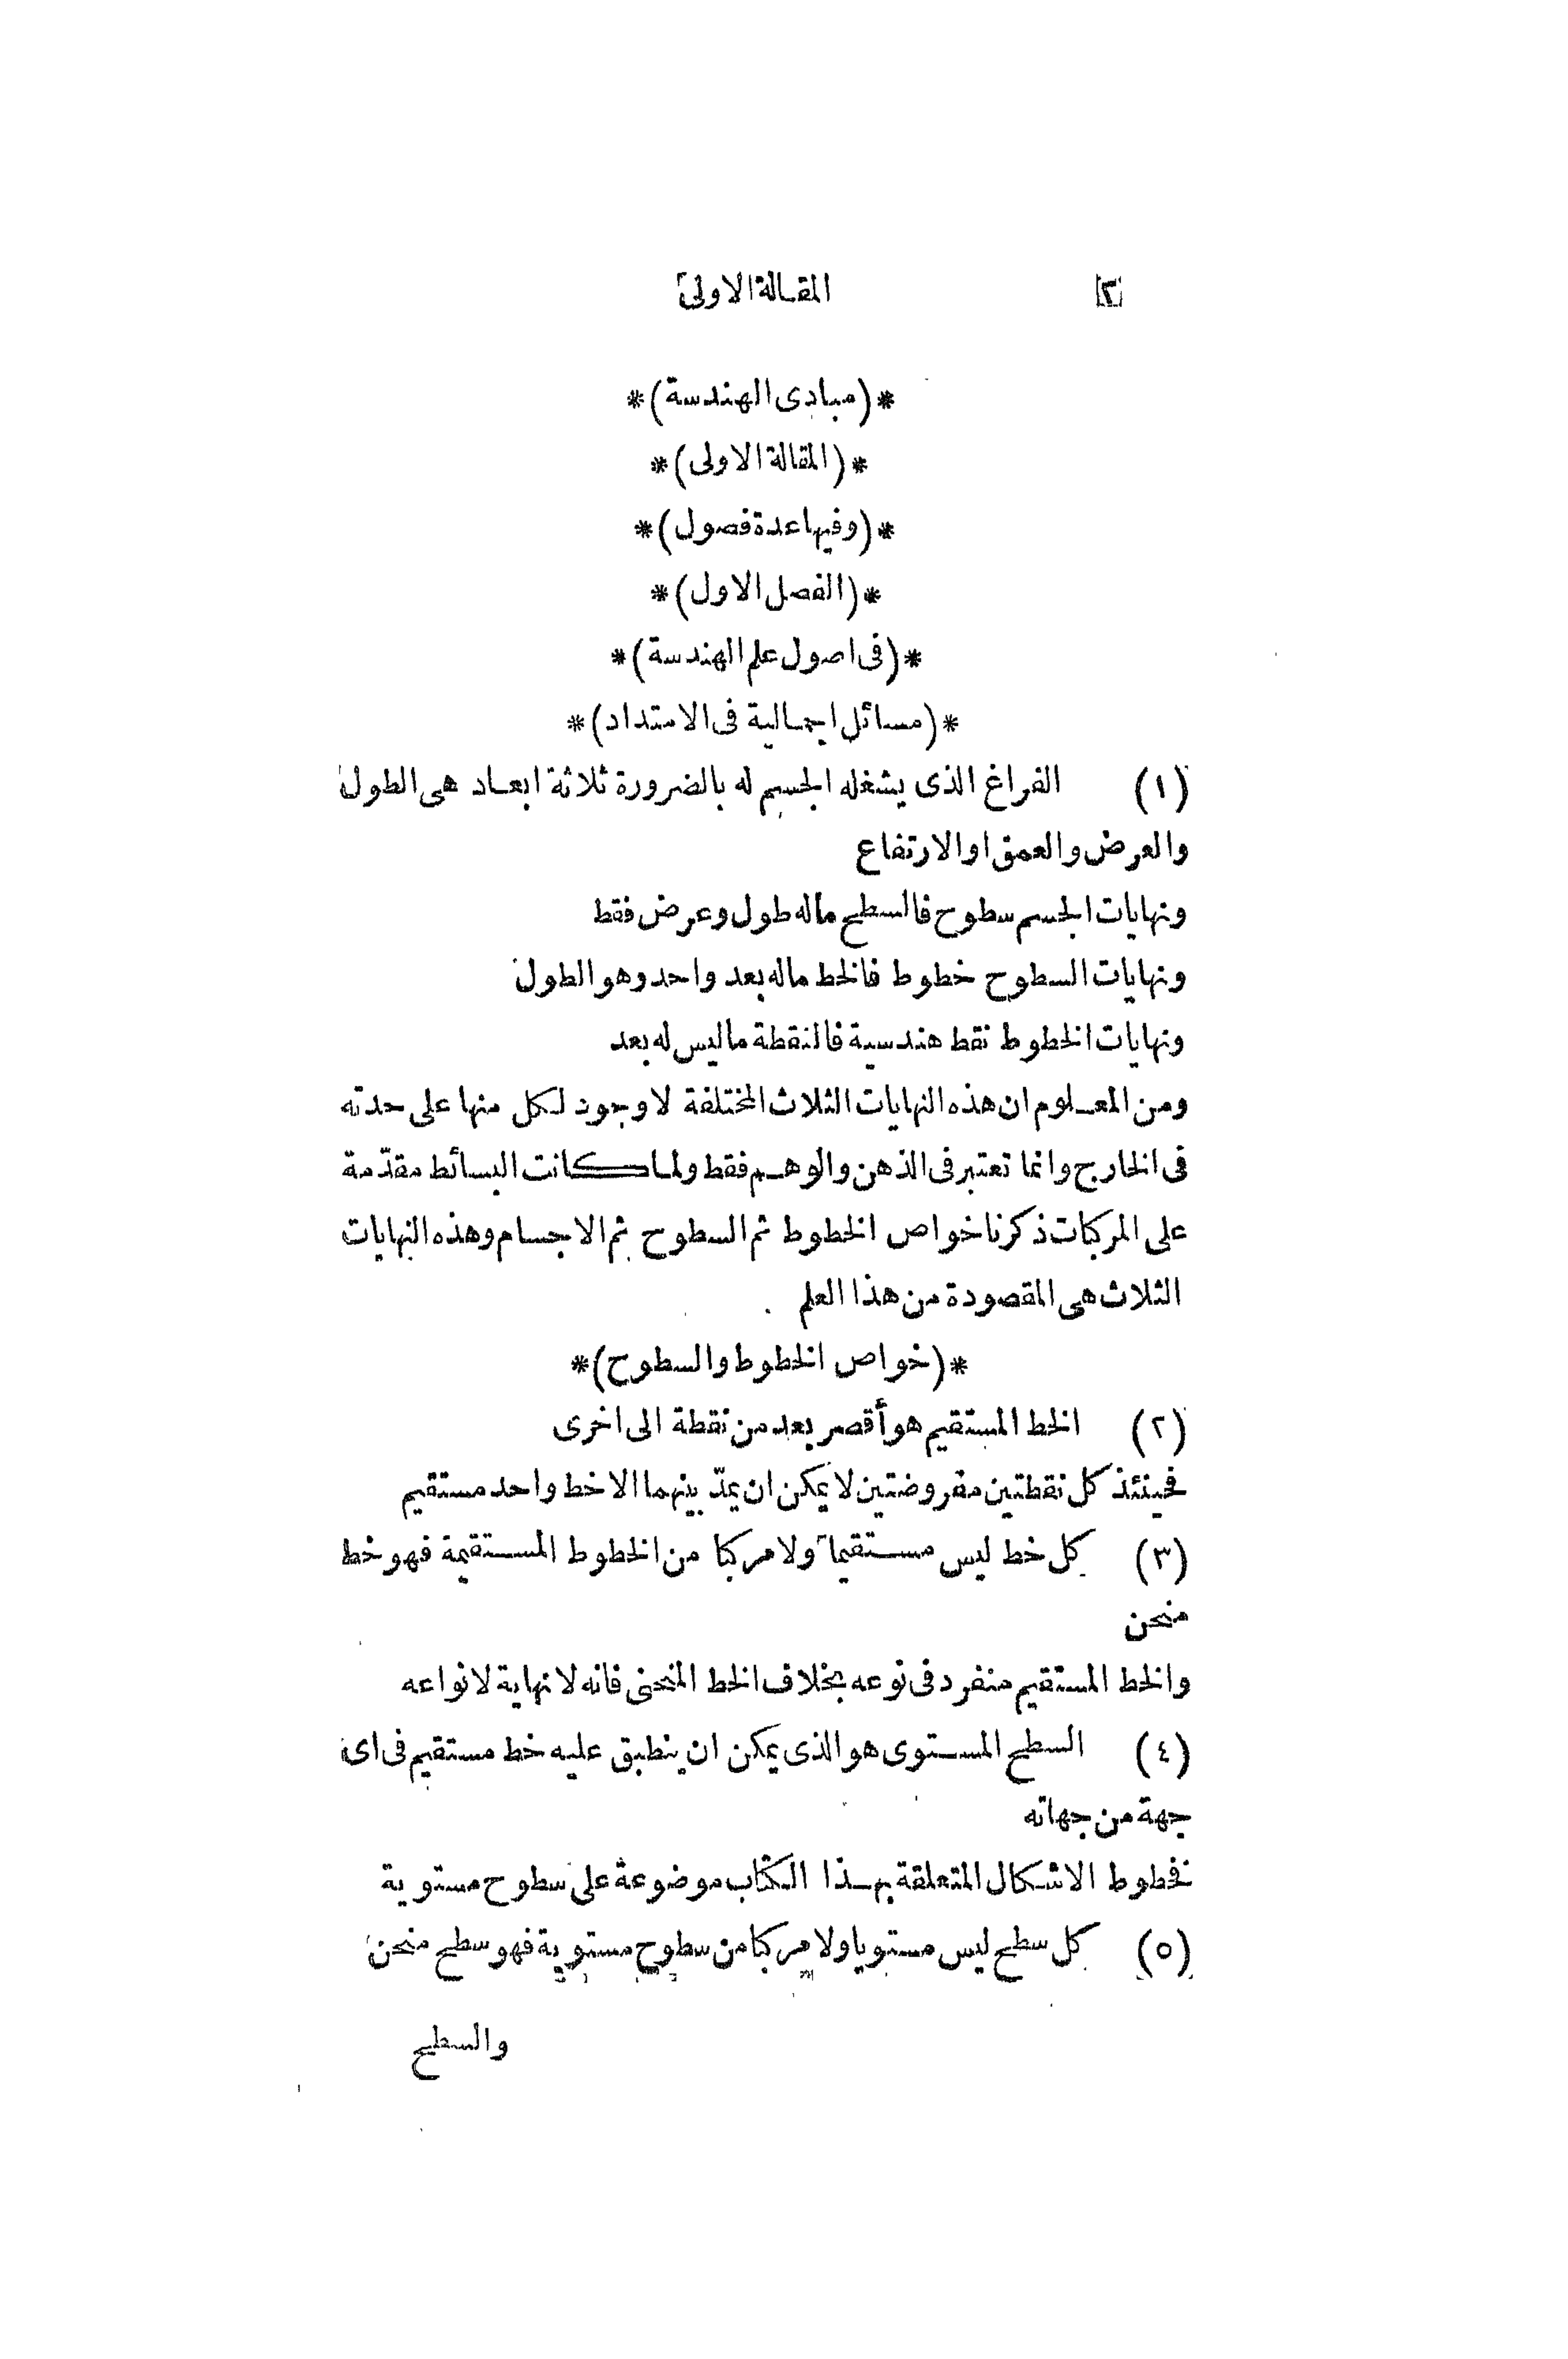 ٢ المقالة الاولى
*(مبادى الهندسة)*
*(المقالة الاولى)*
*(وفيها عدة فصول)*
*(الفصل الاول)*
*(فى اصول علم الهندسة)*
*(مسائل اجمالية فى الامتداد)*
(١) الفراغ الذى يشغله الجسم له بالضرورة ثلاثة ابعاد هى الطول
والعرض والعمق او الارتفاع
ونهايات الجسم سطوح فالسطح ماله طول وعرض فقط
ونهايات السطوح خطوط فالخط ماله بعد واحد وهو الطول
ونهايات الخطوط نقط هندسية فالنقطة ما ليس له بعد
ومن المعلوم ان هذه النهايات الثلاث المختلفة لا وجود لكل منها على حدته
فى الخارج وانما تعتبر فى الذهن والوهم فقط ولما كانت البسائط مقدّمة
على المركبات ذكرنا خواص الخطوط ثم السطوح ثم الاجسام وهذه النهايات
الثلاث هى المقصودة من هذا العلم
*(خواص الخطوط والسطوح)*
(٢) الخط المستقيم هو أقصر بعد من نقطة الى اخرى
فحينئذ كل نقطتين مفروضتين لا يمكن ان يمدّ بينهما الا خط واحد مستقيم
(٣) كل خط ليس مستقيما ولا مركبا من الخطوط المستقيمة فهو خط
منحن
والخط المستقيم منفرد فى نوعه بخلاف الخط المنحنى فانه لا نهاية لانواعه
(٤) السطح المستوى هو الذى يمكن ان ينطبق عليه خط مستقيم فى اى
جهة من جهاته
فخطوط الاشكال المتعلقة بهذا الكتاب موضوعة على سطوح مستوية
(٥) كل سطح ليس مستويا ولا مركبا من سطوح مستوية فهو سطح منحن
والسطح